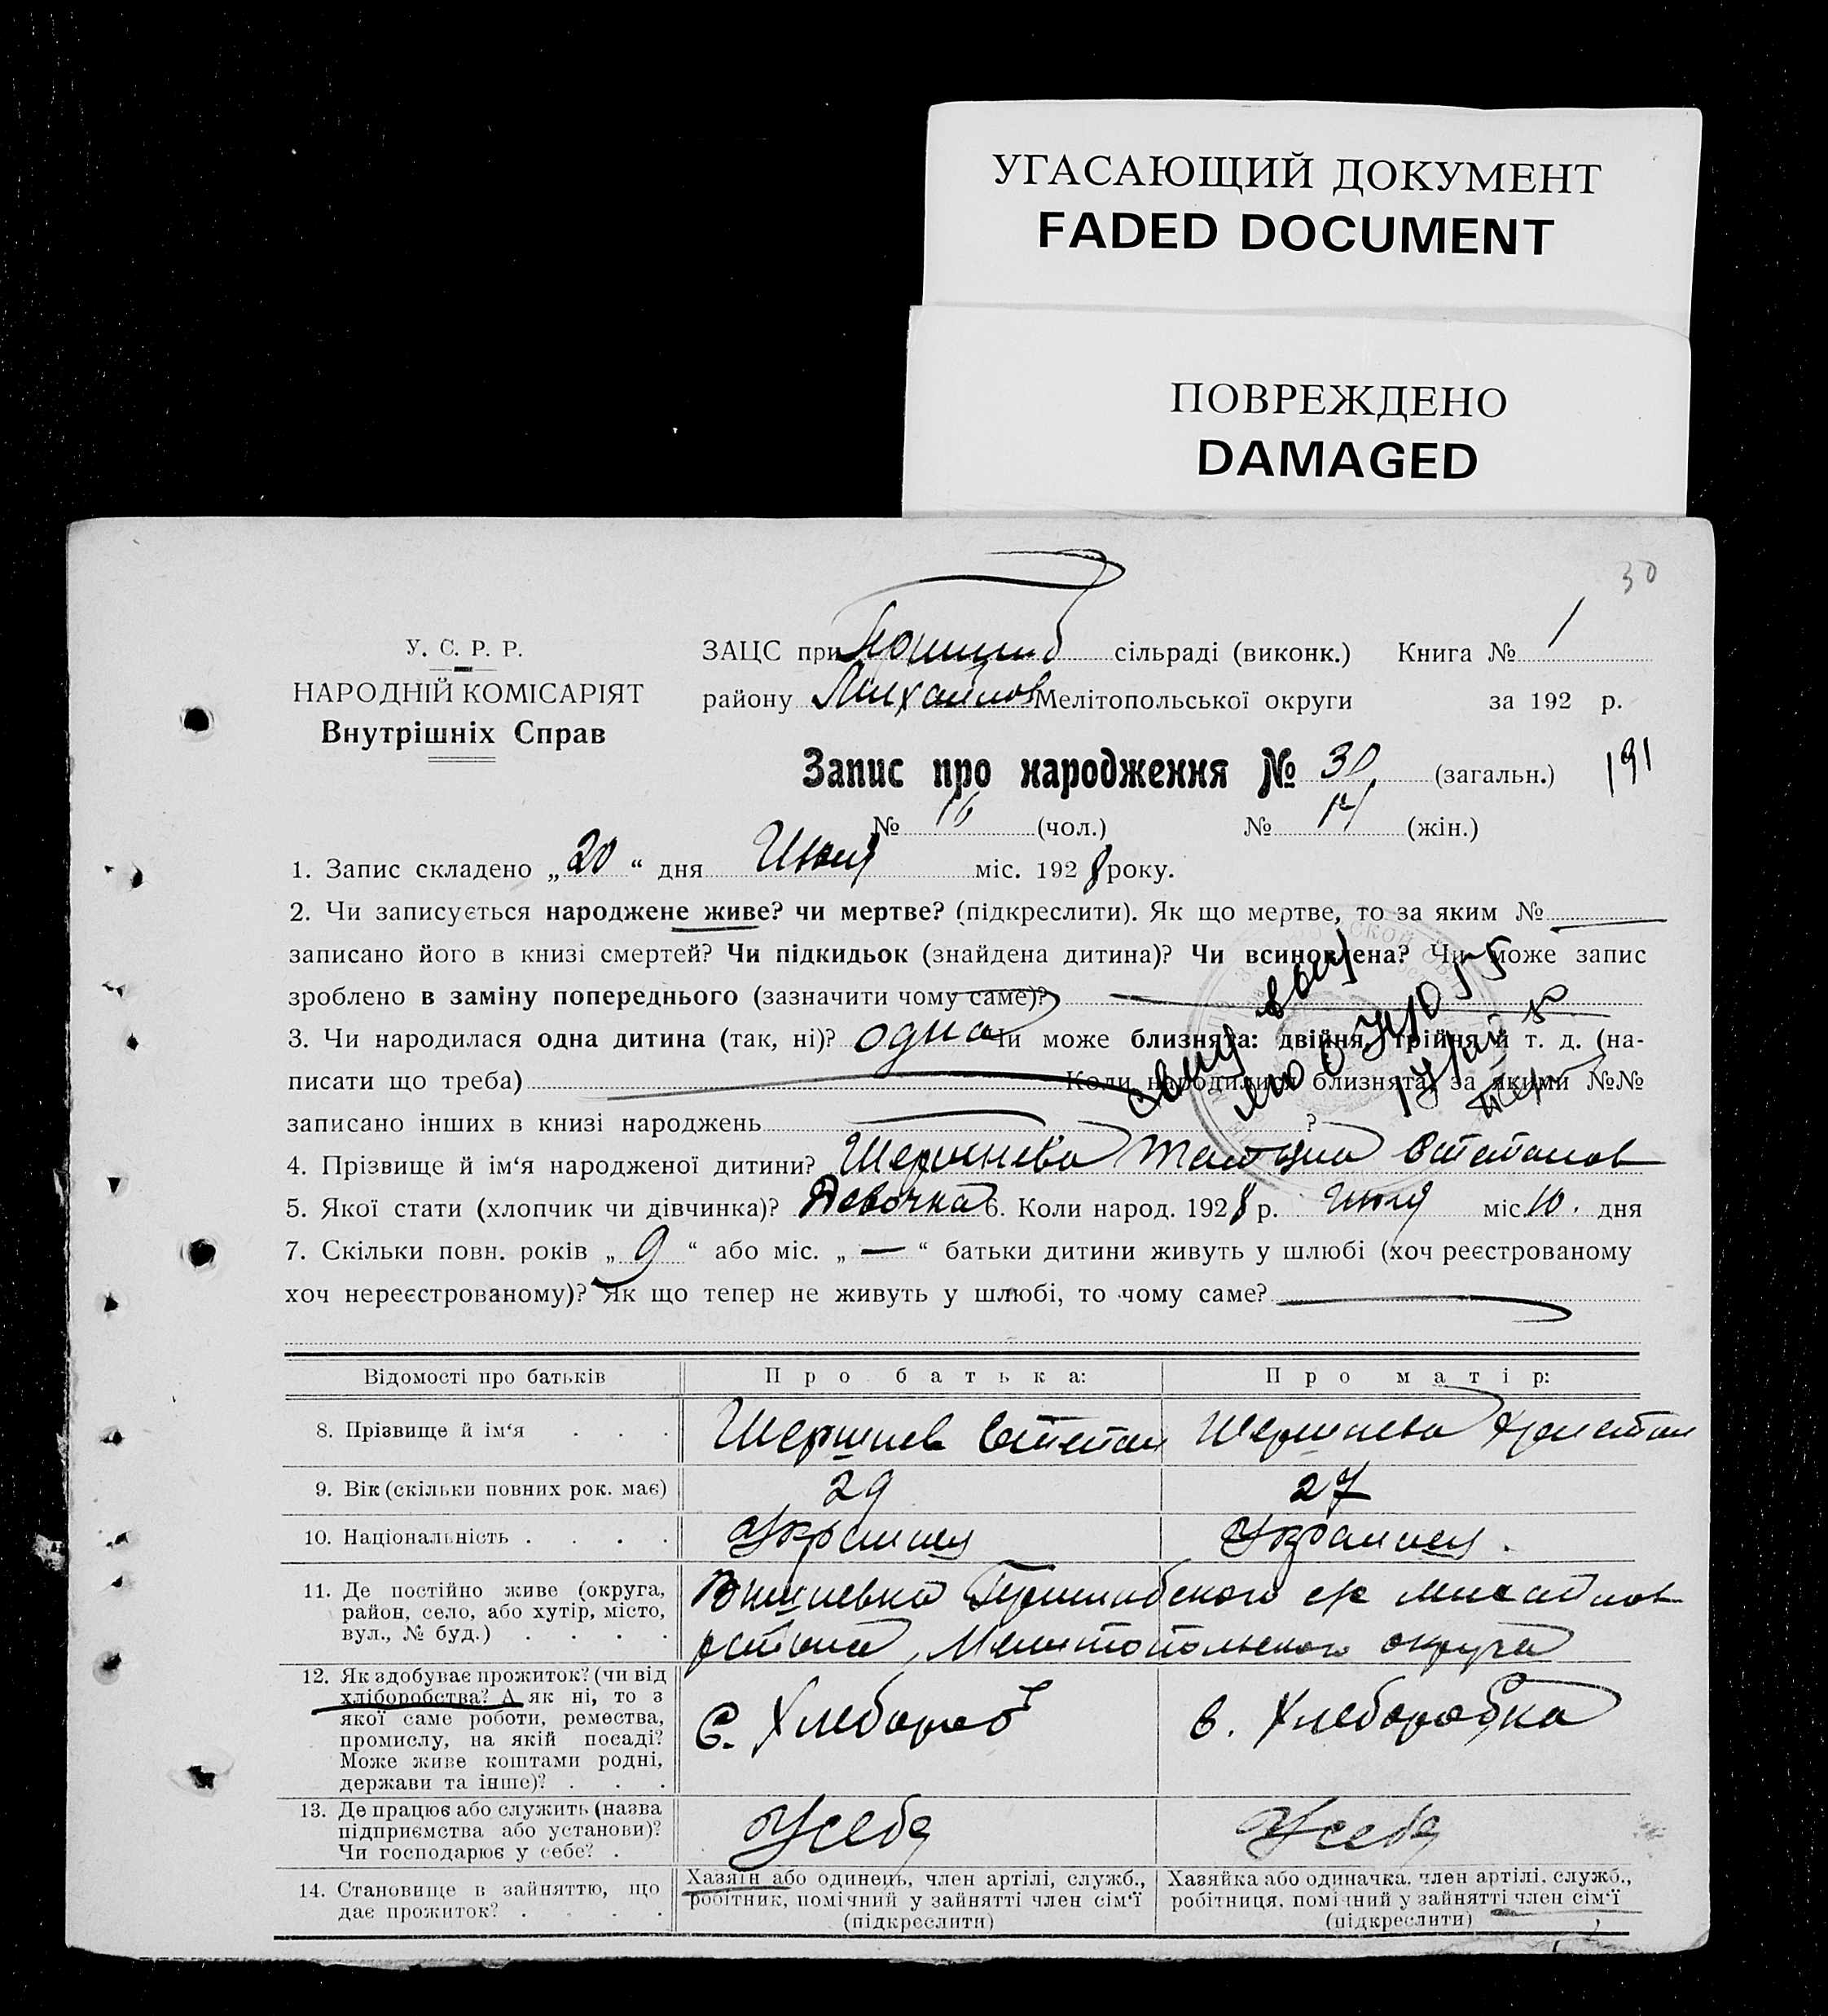 УГАСАЮЩИЙ ДОКУМЕНТ
FADED DOCUMENT
ПОВРЕЖДЕНО
DAMAGED
30
У. С. Р. Р.
НАРОДНІЙ КОМІСАРІЯТ
Внутрішніх Справ
ЗАЦС при сільраді (виконк.) Книга № 1
району Михайлов Мелітопольської округи за 192 р.
Запис про народження № 30 (загальн.) 191
№ 16 (чол.) № 14 (жін.)
1. Запис складено „20“ дня Июля міс. 1928 року.
2. Чи записується народжене живе? чи мертве? (підкреслити). Як що мертве, то за яким №
записано його в книзі смертей? Чи підкидьок (знайдена дитина)? Чи всиновлена? Чи може запис
зроблено в заміну попереднього (зазначити чому саме)?
3. Чи народилася одна дитина (так, ні)? одна Чи може близнята: двійня, трійня й т. д. (на-
писати що треба) Коли народилися близнята, за якими №№
записано інших в книзі народжень ?
4. Прізвище й ім‘я народженої дитини? Шершнева Степанов
5. Якої стати (хлопчик чи дівчинка)? Девочка 6. Коли народ. 1928 р. Июля міс. 10. дня
7. Скільки повн. років „9“ або міс. „—“ батьки дитини живуть у шлюбі (хоч реєстрованому
хоч нереєстрованому)? Як що тепер не живуть у шлюбі, то чому саме?
Відомості про батьків Про батька: Про матір:
8. Прізвище й ім‘я . . . Шершнев Степан Шершнева
9. Вік (скільки повних рок. має) 29 27
10. Національність . . . . Украинец Украинец.
11. Де постійно живе (округа,
район, село, або хутір, місто,
вул., № буд.) . . . .
Вишневка с/с Михайлов
района, Мелитопольского округа
12. Як здобуває прожиток? (чи від
хліборобства? А як ні, то з
якої саме роботи, ремества,
промислу, на якій посаді?
Може живе коштами родні,
держави та інше)? . . .
Хлебороб Хлеборобка
13. Де працює або служить (назва
підприємства або установи)?
Чи господарює у себе? .
У себя У себя
14. Становище в зайняттю, що
дає прожиток? . . . .
Хазяїн або одинець, член артілі, служб.,
робітник, помічний у зайнятті член сім‘ї
(підкреслити)
Хазяйка або одиначка, член артілі, служб.,
робітниця, помічний у зайнятті член сім‘ї
(підкреслити)